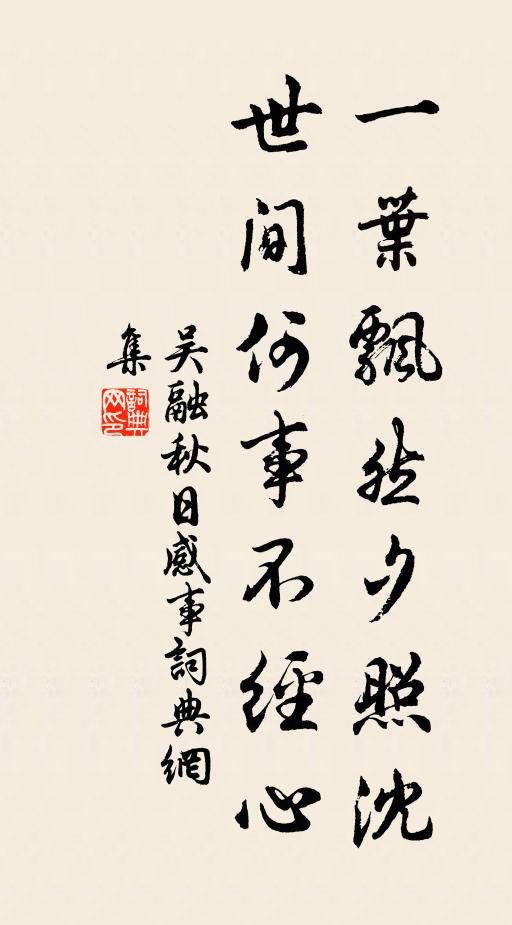 一葉飄然夕照沈
世间何事不經心
吴融秋日感事詞典網
集
詞典
网印